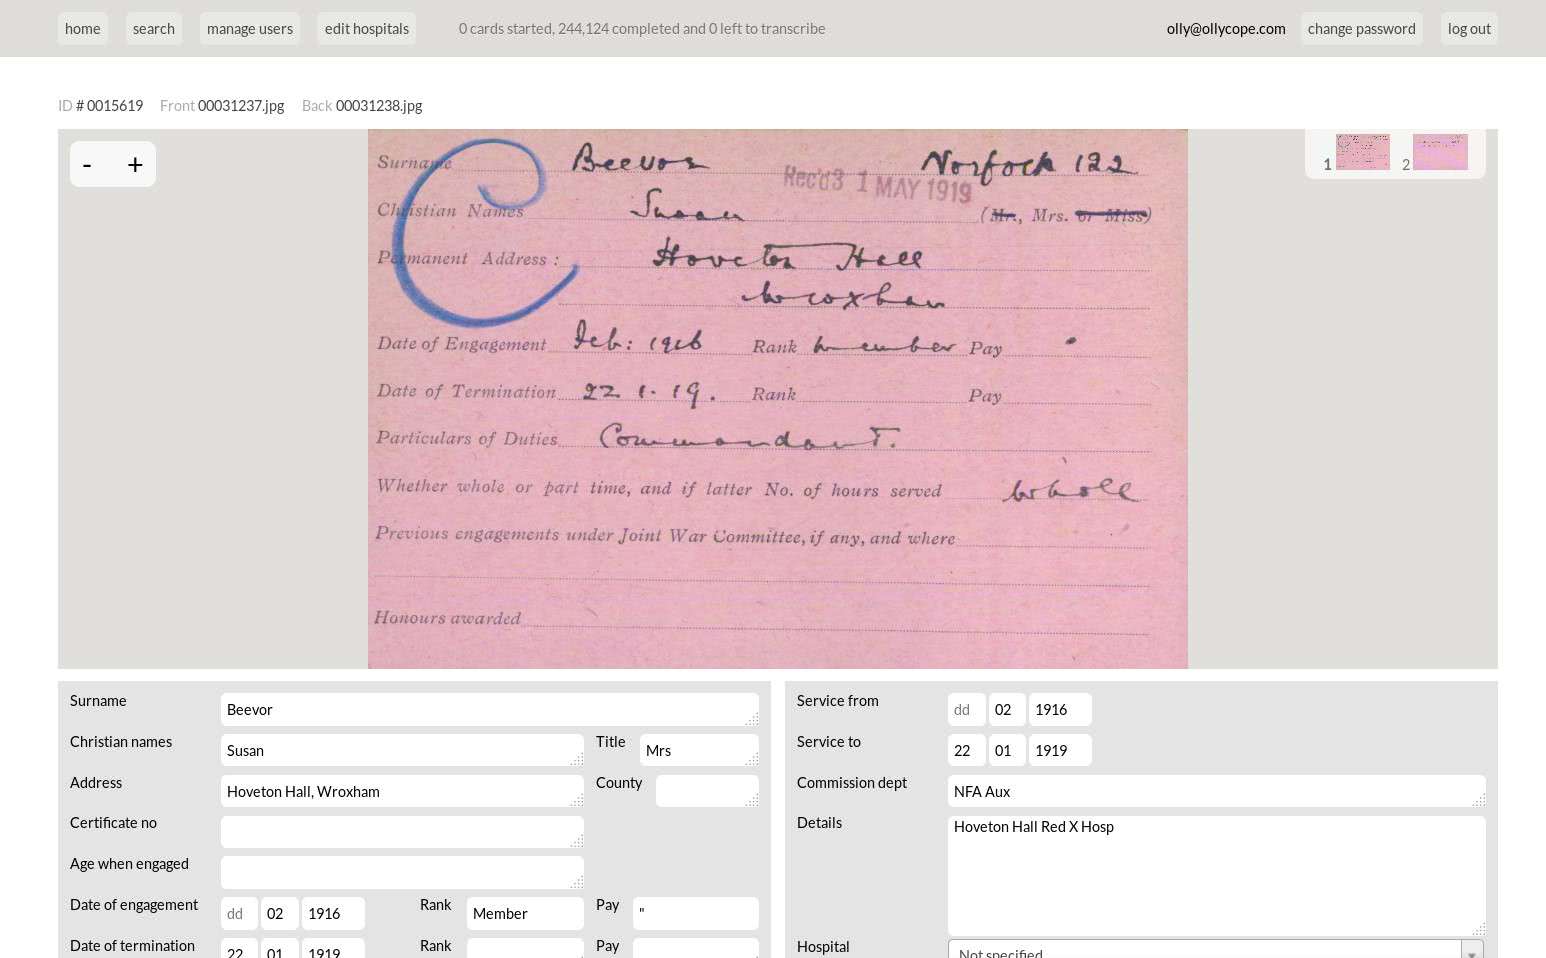 home search manage users edit hospitals 0 cards started, 244,124 completed and 0 left to transcribe olly@ollycope.com change password log out
ID # 0015619 Front 00031237.jpg Back 00031238.jpg
- +
1 2
Surname Beevor Norfolk 122
Rec'd 31 MAY 1919
Christian Names Susan (Mr., Mrs. or Miss)
Permanent Address: Hoveton Hall
Wroxham
Date of Engagement Feb: 1916 Rank Member Pay
Date of Termination 22.1.19. Rank Pay
Particulars of Duties Commandant.
Whether whole or part time, and if latter No. of hours served Whole
Previous engagements under Joint War Committee, if any, and where
Honours awarded
Surname Beevor
Christian names Susan Title Mrs
Address Hoveton Hall, Wroxham County
Certificate no
Age when engaged
Date of engagement dd 02 1916 Rank Member Pay "
Date of termination 22 01 1919 Rank Pay
Service from dd 02 1916
Service to 22 01 1919
Commission dept NFA Aux
Details Hoveton Hall Red X Hosp
Hospital Not specified